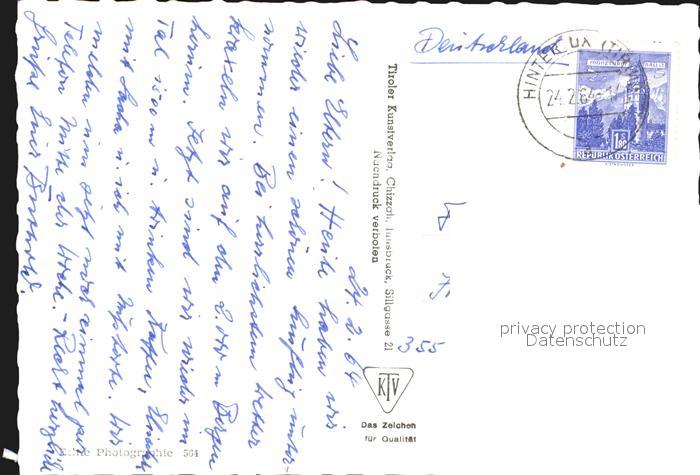 24. 2. 64
Liebe Eltern! Heute haben wir
wieder einen schönen Ausflug unter-
nommen. Bei herrlichstem Wetter
kraxeln wir auf den 2. Bergen
herum. Jetzt sind wir wieder im
Tal 1500 m u. trinken Kaffee,
mit u. ich mit Wir
melden uns jetzt noch einmal per
Telefon Mitte der Woche. - Recht herzliche
Grüße Eure
Echte Photographie 564
Tiroler Kunstverlag, Chizzali, Innsbruck, Sillgasse 21
Nachdruck verboten
Deutschland
HINTERTUX (TIROL)
24.2.64-17
1.80
REPUBLIK ÖSTERREICH
355
KTV
Das Zeichen
für Qualität
privacy protection
Datenschutz